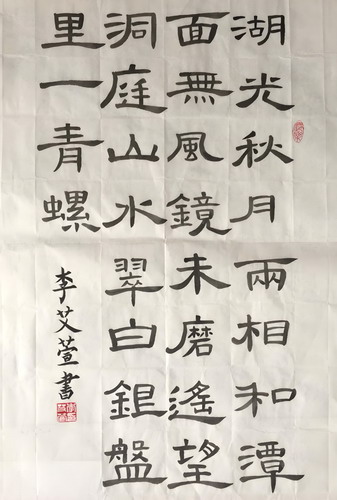 湖光秋月兩相和潭
面無風鏡未磨遙望
洞庭山水翠白銀盤
里一青螺
李艾萱書